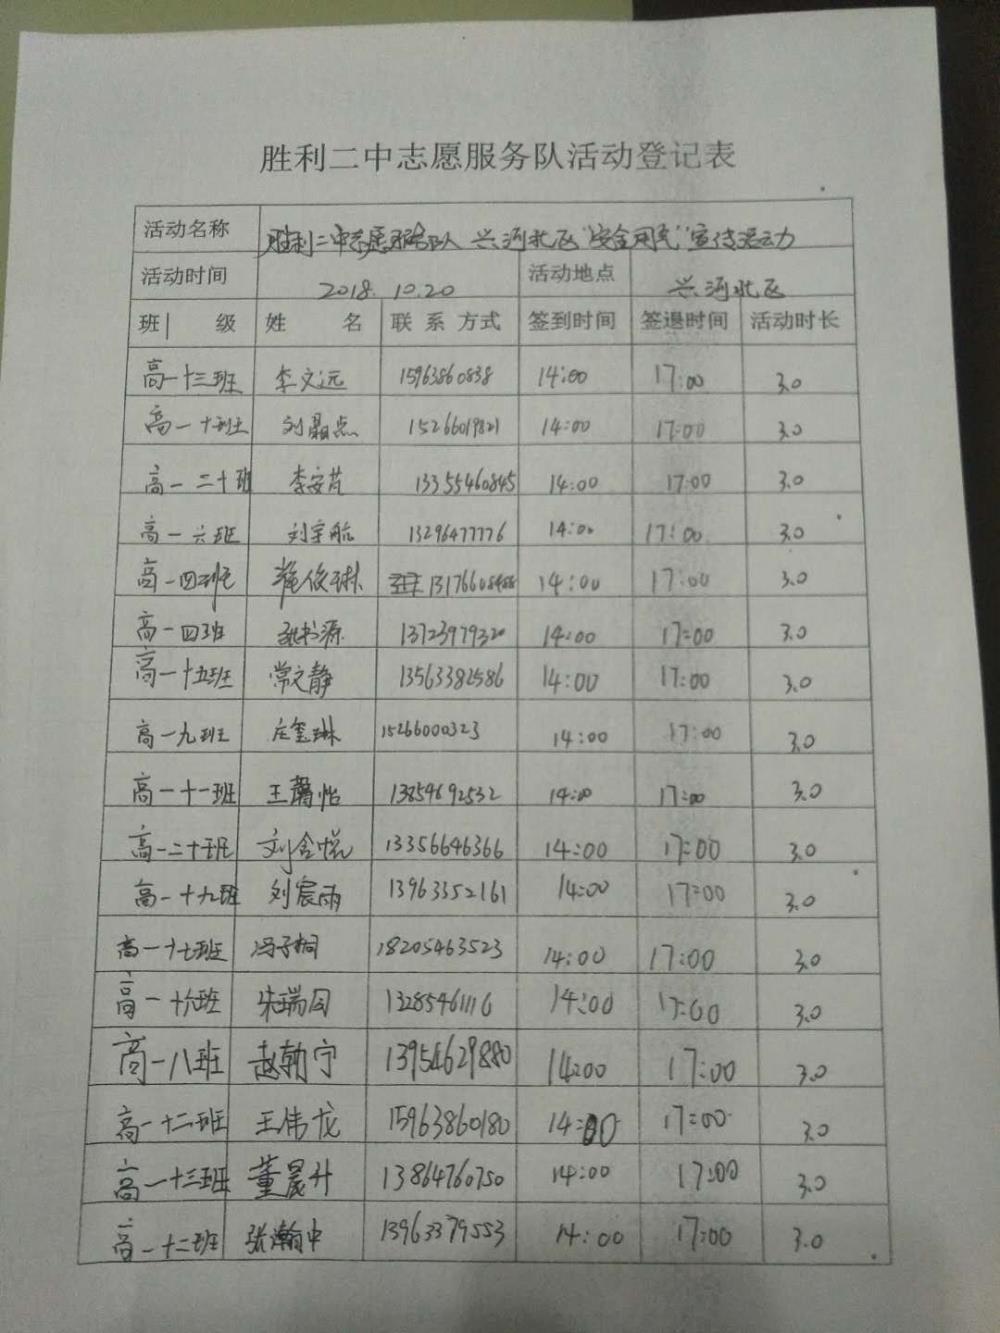 胜利二中志愿服务队活动登记表
活动名称 胜利二中志愿服务队 兴河北区"安全用电"宣传活动
活动时间 2018.10.20 活动地点 兴河北区
班 级 姓 名 联 系 方式 签到时间 签退时间 活动时长
高一十三班 李文远 15963860838 14:00 17:00 3.0
高一十班 刘 点 15266019821 14:00 17:00 3.0
高一二十班 李安芮 13355460845 14:00 17:00 3.0
高一六班 刘宇航 1329647776 14:00 17:00 3.0
高一四班 俊琳 14:00 17:00 3.0
高一四班 书源 13723979320 14:00 17:00 3.0
高一十五班 常文静 13563382586 14:00 17:00 3.0
高一九班 庄玺琳 15266000323 14:00 17:00 3.0
高一十一班 王 怡 13254692532 14:00 17:00 3.0
高一二十班 刘含悦 13356646366 14:00 17:00 3.0
高一十九班 刘宸雨 13963352161 14:00 17:00 3.0
高一十七班 冯子桐 18205463523 14:00 17:00 3.0
高一十六班 朱瑞国 13285461116 14:00 17:00 3.0
高一八班 赵勃宁 13954629880 14:00 17:00 3.0
高一十二班 王伟龙 15963860180 14:00 17:00 3.0
高一十三班 董晟升 13864760750 14:00 17:00 3.0
高一十二班 张瀚中 13963379553 14:00 17:00 3.0